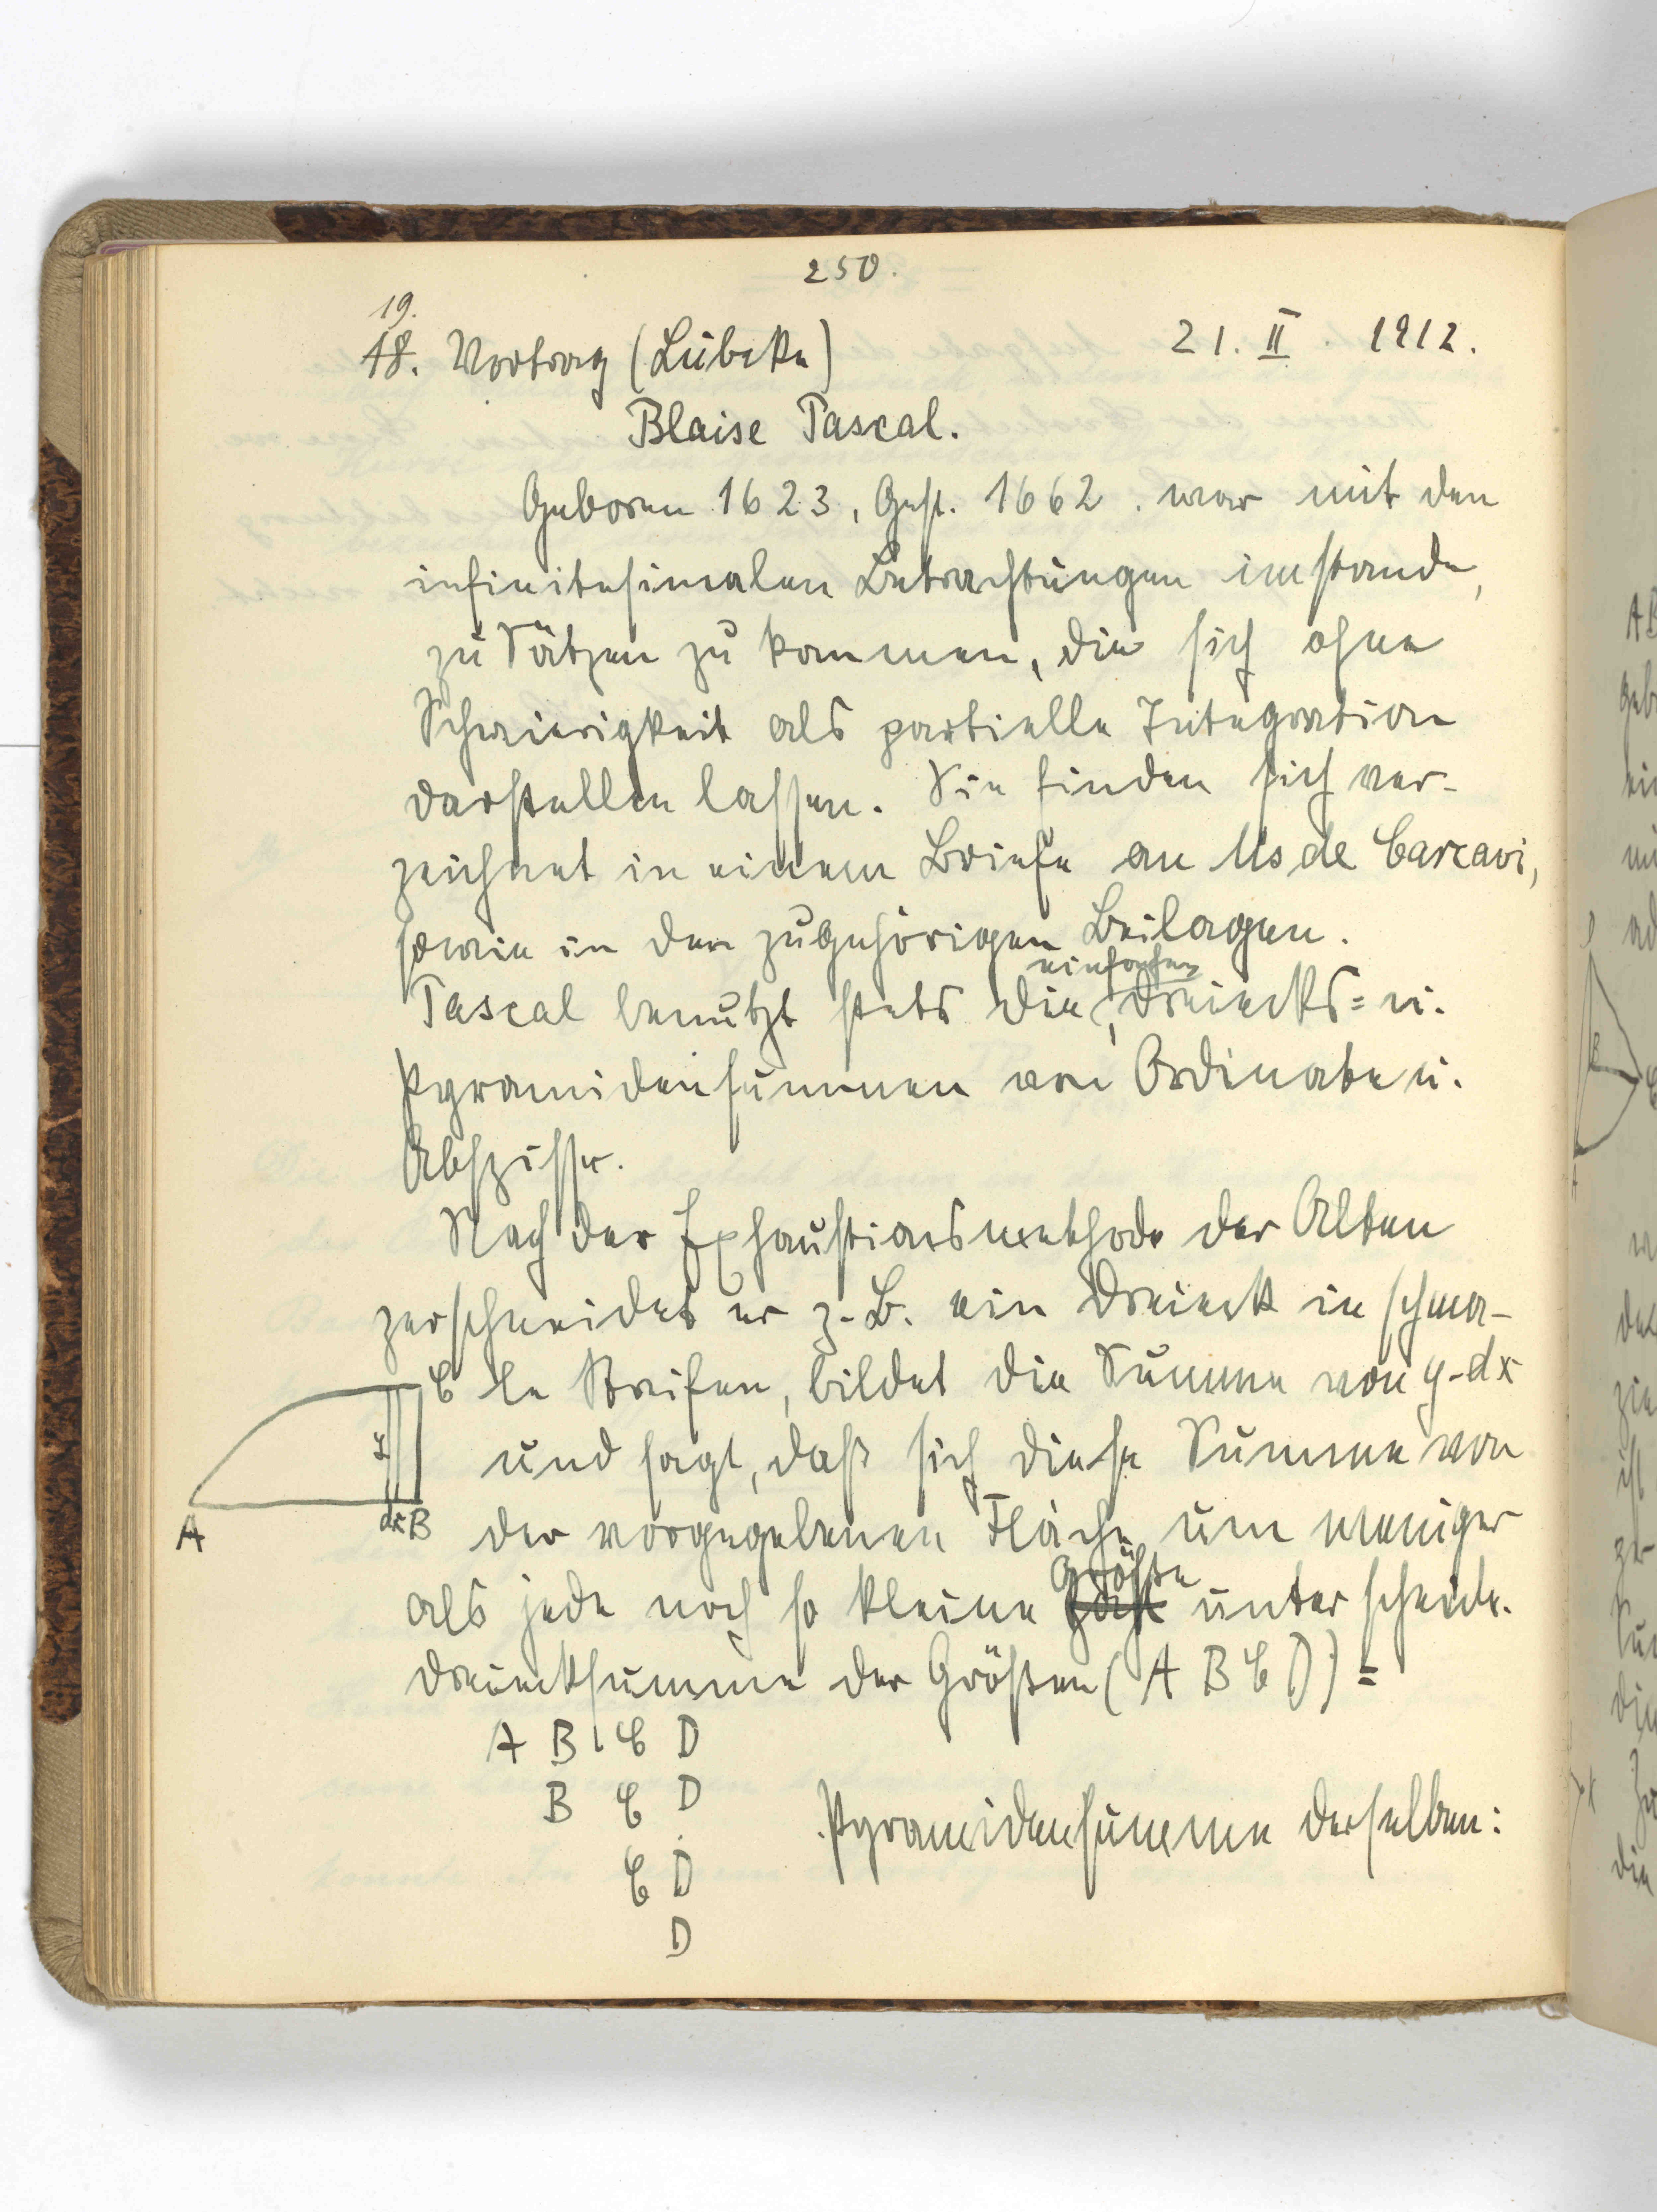 250.
19.
18. Vortrag (Lübcke) 21. II 1912.
Blaise Pascal.
Geboren 1623, Gest. 1662. war mit den
infinitesimalen Betrachtungen imstande,
zu Sätzen zu kommen, die sich ohne
Schwierigkeit als partielle Integration
darstellen lassen. Sie finden sich ver-
zeichnet in einem Briefe an Ms de Carcavi,
sowie in den zugehörigen Beilagen.
einfachen
Pascal benutzt stets die, Dreiecks= u.
Pyramidensummen von Ordinate u.
Abszisse.
Nach der Exhaustionsmethode der Alten
zerschneidet er z. B. ein Dreieck in schma-
C le Streifen, bildet die Summe von y-dx
y und sagt, daß sich diese Summe von
A dx B der vorgegebenen Fläche um weniger
Größe
als jede noch so kleine unterscheide.
Dreiecksumme der Größen (A B C D) =
A B C D
B C D Pyramidensumme derselben:
C D
D